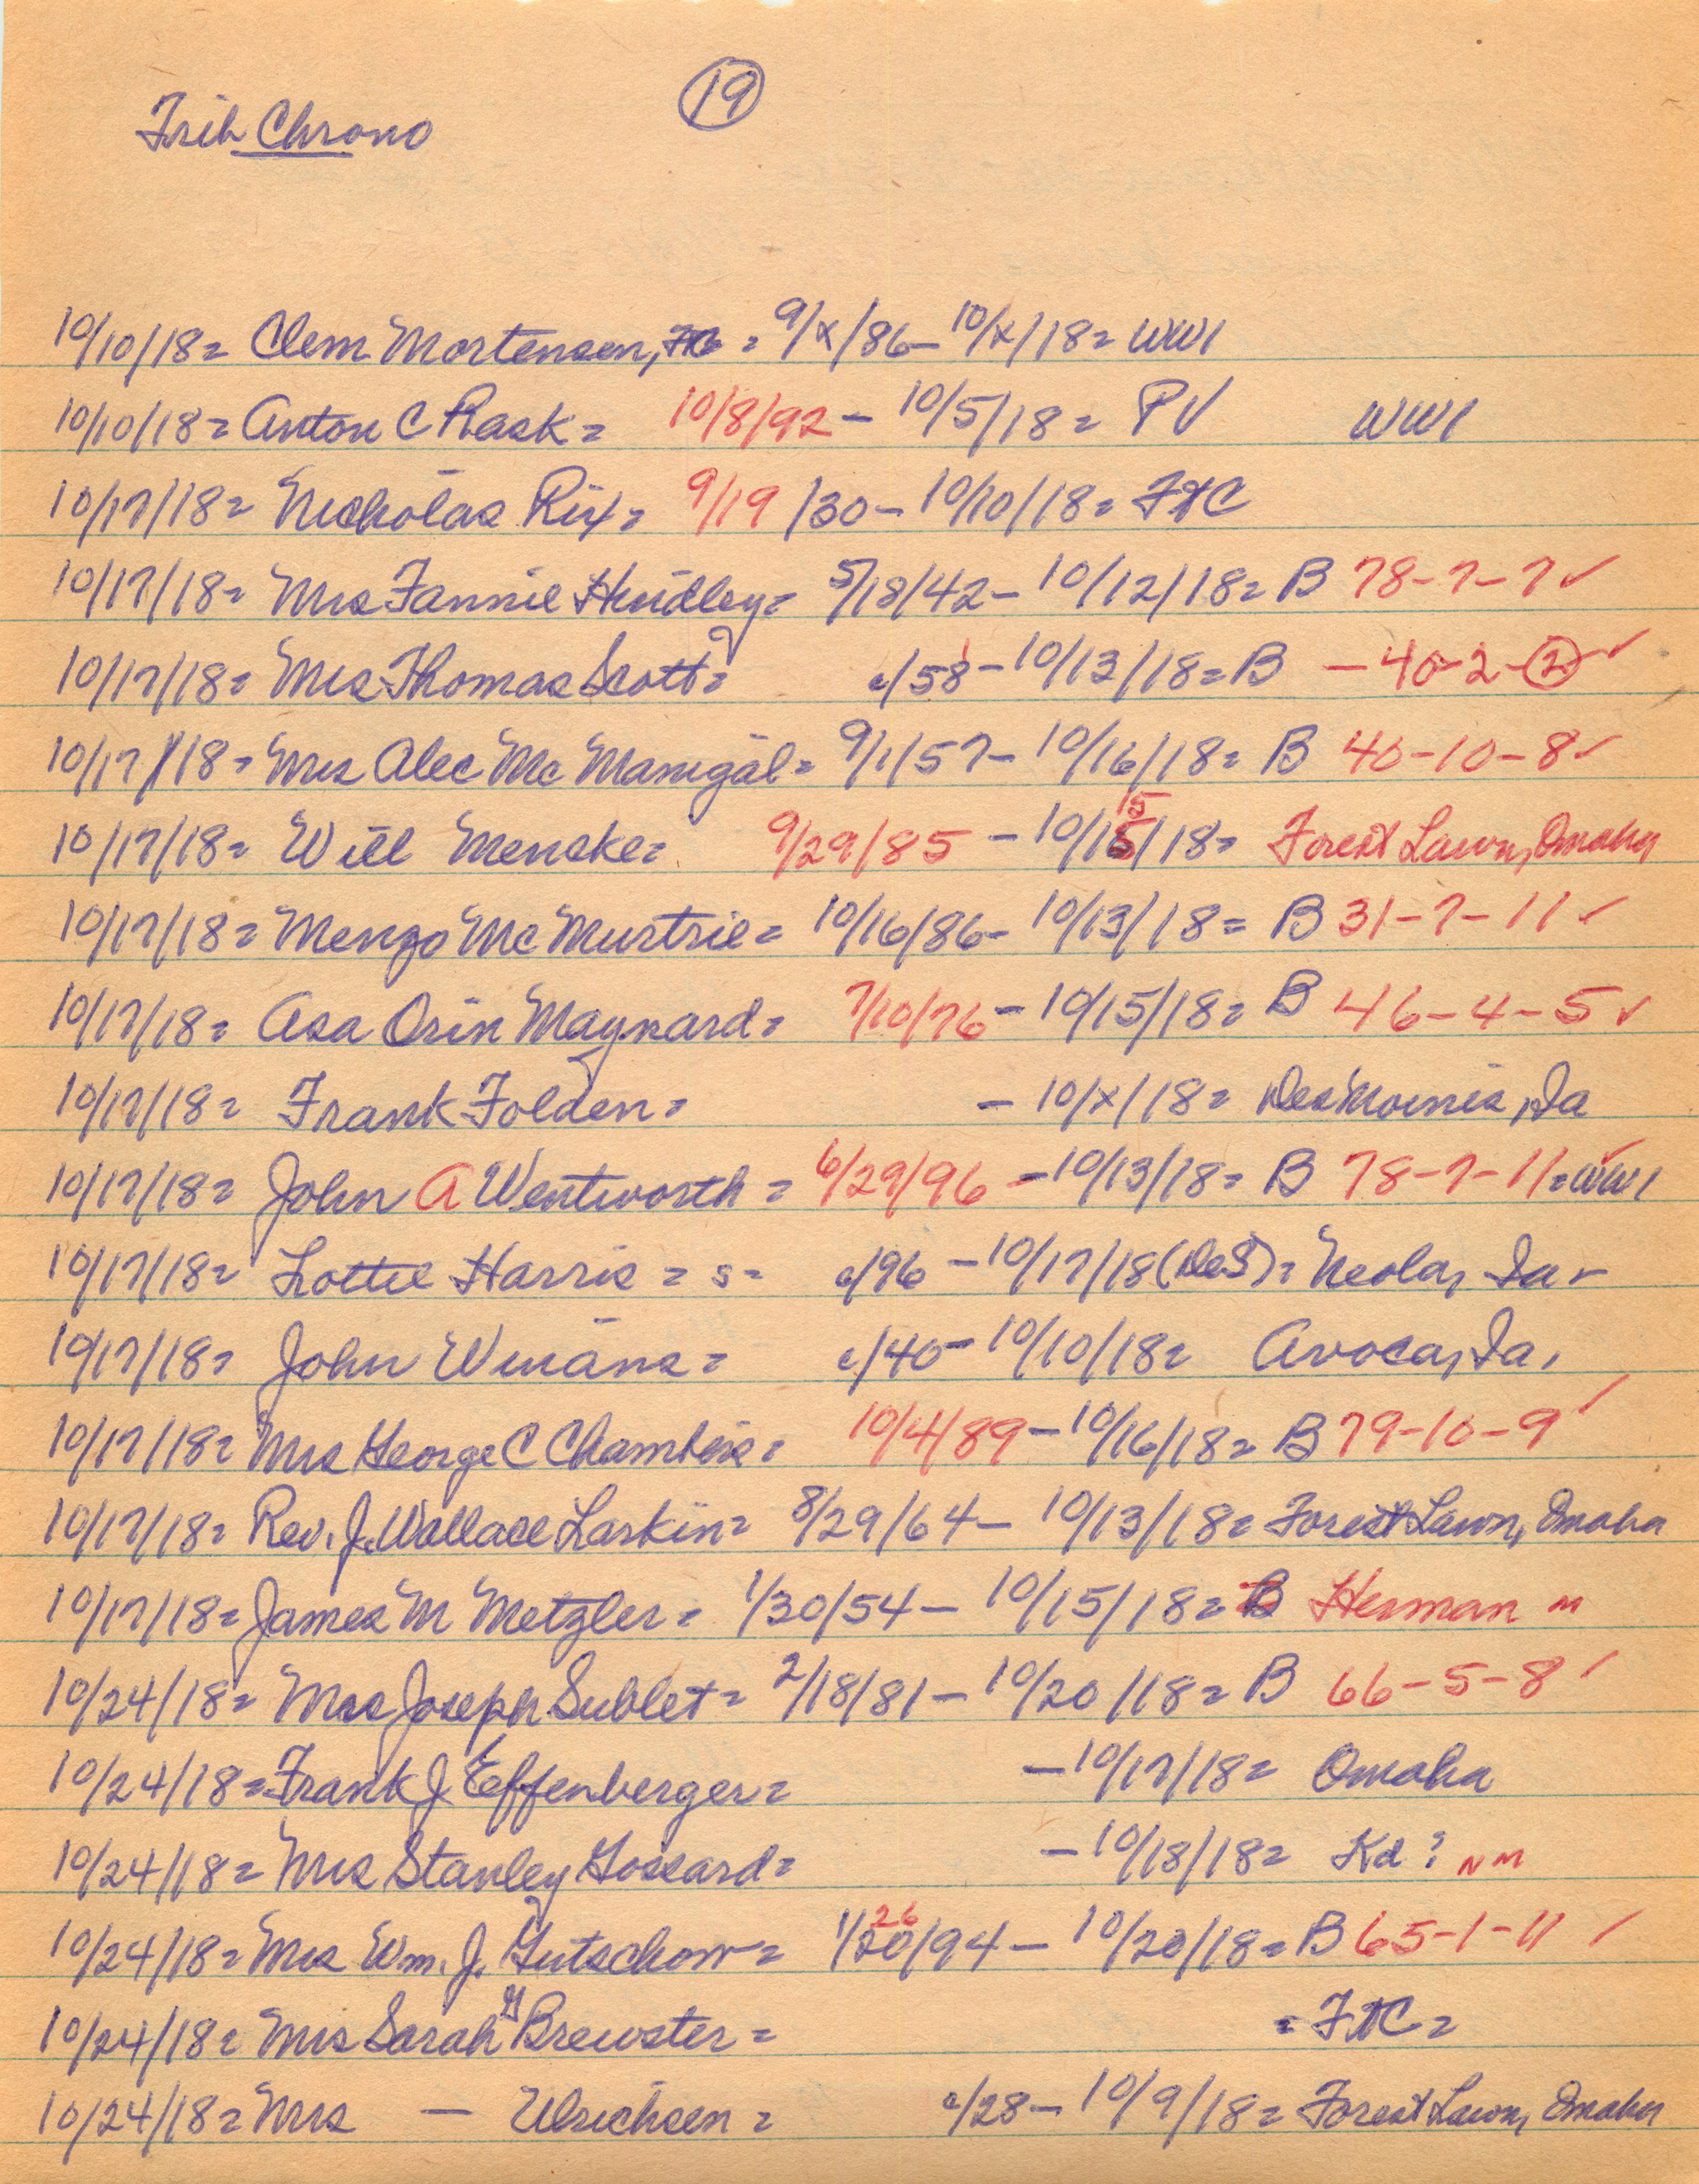 19
Trib Chrono
10/10/18= Clem Mortensen, = 9/x/86- 10/x/18= WW1
10/10/18= Anton C Rask= 10/8/92 - 10/5/18= PV WW1
10/17/18= Nicholas Rix= 9/19/30- 10/10/18= FtC
10/17/18= Mrs Fannie Hindley= 5/18/42- 10/12/18= B 78-7-7 ✓
10/17/18= Mrs Thomas Scott= c/58- 10/13/18= B -40-2-② ✓
10/17/18= Mrs Alec McManigal= 9/1/57- 10/16/18= B 40-10-8 ✓
10/17/18= Will Menske= 9/29/85 - 10/15/18= Forest Lawn, Omaha
10/17/18= Menzo McMurtrie= 10/16/86- 10/13/18= B 31-7-11 ✓
10/17/18= Asa Orin Maynard= 7/10/76- 10/15/18= B 46-4-5 ✓
10/17/18= Frank Folden= - 10/x/18= Des Moines, Ia
10/17/18= John A Wentworth= 6/29/96 - 10/13/18= B 78-7-11 ✓ = WW1
10/17/18= Lottie Harris = s= c/96 - 10/17/18 (DeS)= Neola, Ia ✓
10/17/18= John Winans= c/40- 10/10/18= Avoca, Ia.
10/17/18= Mrs George C Chambers= 10/4/89- 10/16/18= B 79-10-9 ✓
10/17/18= Rev. J. Wallace Larkin= 8/29/64- 10/13/18= Forest Lawn, Omaha
10/17/18= James M Metzler= 1/30/54- 10/15/18= B Herman m
10/24/18= Mrs Joseph Sublet= 2/18/81- 10/20/18= B 66-5-8 ✓
10/24/18= Frank J Effenberger= - 10/17/18= Omaha
10/24/18= Mrs Stanley Gossard= - 10/18/18= Kd? nm
10/24/18= Mrs Wm. J. Gutschow= 1/20/94 26 - 10/20/18= B 65-1-11 ✓
10/24/18= Mrs Sarah G Brewster= = FtC=
10/24/18= Mrs — Ulrichsen= c/28- 10/9/18= Forest Lawn, Omaha